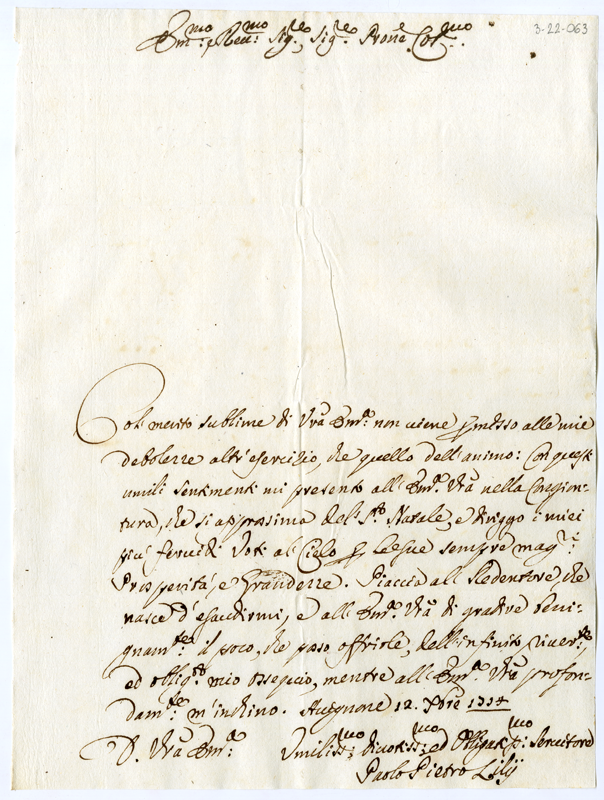 3-22-063
Em:mo e Reu:mo Sig:re Sig:re Prone Col:mo
Col merito sublime di Vra Em:a non viene pmesso alle mie
debolezze altr'esercizio, che quello dell'animo: Con questi
umili sentimenti mi presento all'Em:a Vra nella Congion-
tura, che si approssima del S:to Natale, e dirigo i miei
più feruidi Voti al Cielo p le sue sempre mag:ri
Prosperità, e Grandezze. Piaccia al Redentore, che
nasce d'esaudirmi, e all'Em:a Vra di gradire beni-
gnam:te il poco, che posso offrirle, dell'infinito, riuer:te,
ed obblig:mo mio ossequio, mentre all'Em:a Vra profon-
dam:te m'inchino. Auignone 12. Xbre
D. Vra Em:a Vmiliss:mo diuotiss:mo ed Obligatis:mo Seruitore
Paolo Pietro Lilij